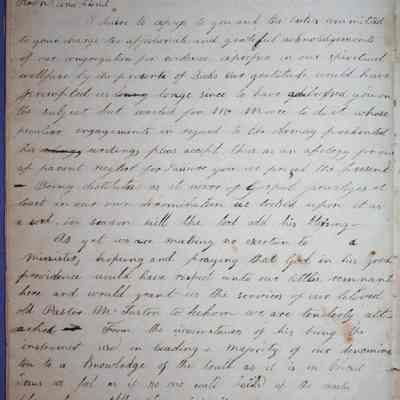 I have to express to you and the ladies committed
to your charge the affectionate and grateful acknowledgements
of our congregation for evidence expressed in our spiritual
wellfare by the presents of Books our gratitude would have
prompted us long since to have addressed you on
the subject but waited for Mr to do it whose
peculiar engagements in regard to the prevented
his writing please accept this as an apology for our
apparent neglect for I assure you we prized the present
Being destitute as it were of Gospel privileges at
least in our own denomination we looked upon it as
a word in season will the Lord add his blessing
As yet we are making no exertion to a
Minister, hopeing and praying that God in his good
providence will have respect unto our little remnant
here and would grant us the services of our beloved
old Pastor Mr to whom we are tenderly att-
ached From the circumstance of his being the
instrument in leading a majority of our denomina
tion to a Knowledge of the truth as it is in
Jesus as far as